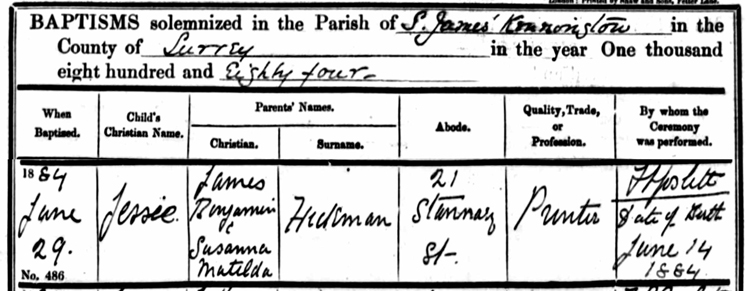 BAPTISMS solemnized in the Parish of S. James' Kennington in the
County of Surrey in the year One thousand
eight hundred and Eighty four
When Baptized. Child's Christian Name. Parents' Names. Abode. Quality, Trade, or Profession. By whom the Ceremony was performed.
Christian. Surname.
1884 James 21
June Jessie Benjamin Hickman Stannary Printer Date of Birth
29. & Susanna St. June 14
No. 486 Matilda 1884